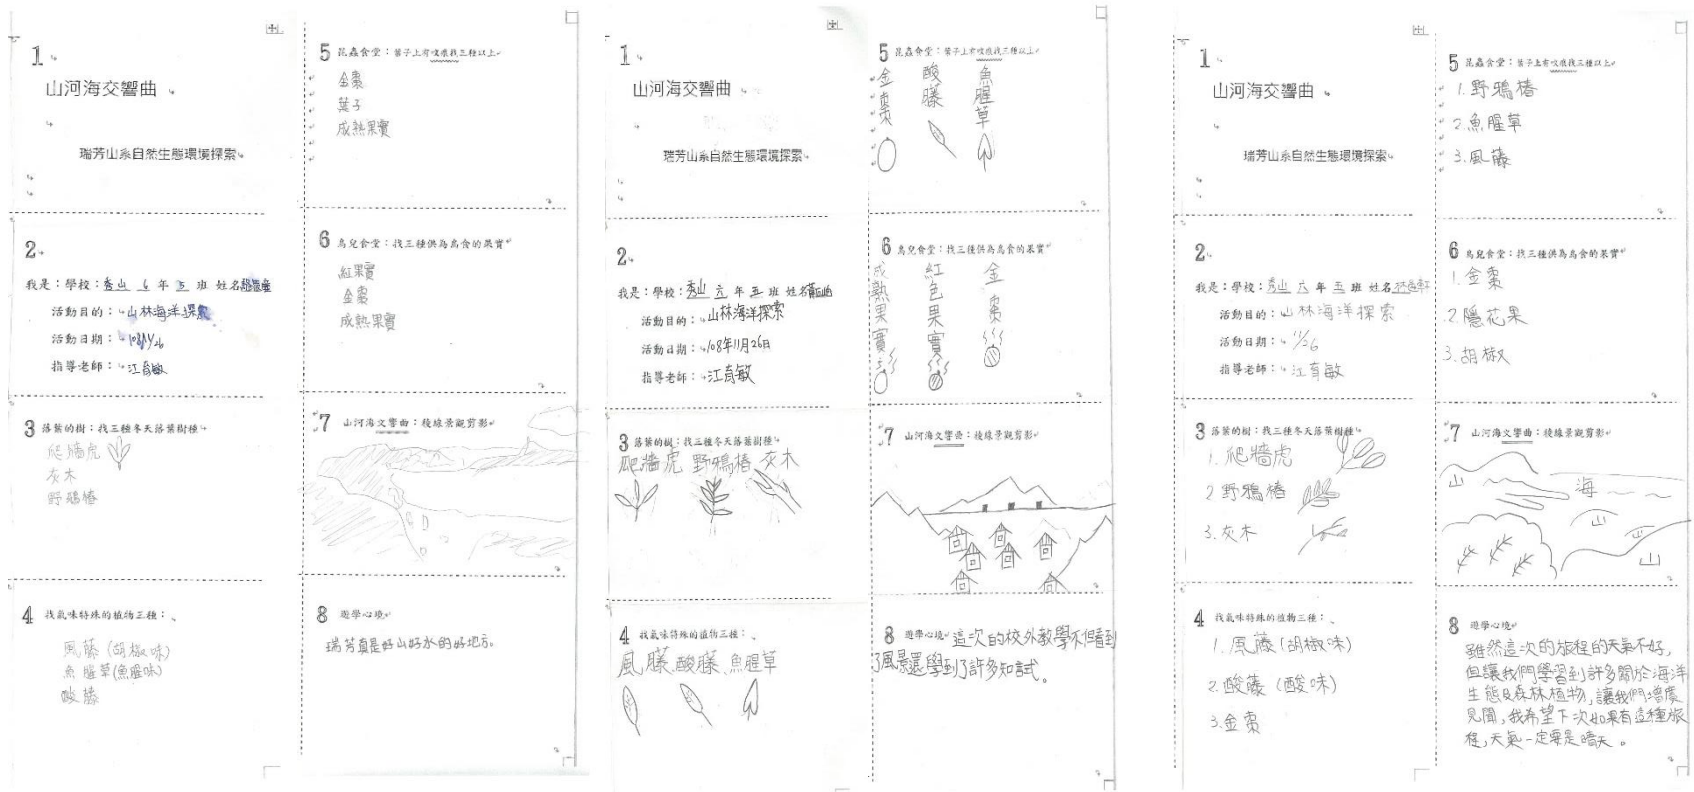 1
山河海交響曲
瑞芳山系自然生態環境探索
2
我是：學校：秀山 6 年 5 班 姓名
活動目的：山林海洋探索
活動日期：108/11/26
指導老師：江育敏
3 落葉的樹：找三種冬天落葉樹種
爬牆虎
灰木
野鴉椿
4 找氣味特殊的植物三種：
風藤(胡椒味)
魚腥草(魚腥味)
酸藤
5 昆蟲食堂：葉子上有咬痕找三種以上
金棗
葉子
成熟果實
6 鳥兒食堂：找三種供為鳥食的果實
紅果實
金棗
成熟果實
7 山河海交響曲：稜線景觀剪影
8 遊學心境
瑞芳真是好山好水的好地方。
1
山河海交響曲
瑞芳山系自然生態環境探索
2
我是：學校：秀山 六 年 五 班 姓名
活動目的：山林海洋探索
活動日期：108年11月26日
指導老師：江育敏
3 落葉的樹：找三種冬天落葉樹種
爬牆虎 野鴉椿 灰木
4 找氣味特殊的植物三種：
風藤、酸藤、魚腥草
5 昆蟲食堂：葉子上有咬痕找三種以上
金棗
酸藤
魚腥草
6 鳥兒食堂：找三種供為鳥食的果實
成熟果實
紅色果實
金棗
7 山河海交響曲：稜線景觀剪影
8 遊學心境 這次的校外教學不但看到
了風景還學到了許多知試。
1
山河海交響曲
瑞芳山系自然生態環境探索
2
我是：學校：秀山 六 年 五 班 姓名
活動目的：山林海洋探索
活動日期：11/26
指導老師：江育敏
3 落葉的樹：找三種冬天落葉樹種
1. 爬牆虎
2 野鴉椿
3. 灰木
4 找氣味特殊的植物三種：
1. 風藤(胡椒味)
2. 酸藤(酸味)
3. 金棗
5 昆蟲食堂：葉子上有咬痕找三種以上
1. 野鴉椿
2. 魚腥草
3. 風藤
6 鳥兒食堂：找三種供為鳥食的果實
1. 金棗
2. 隱花果
3. 胡椒
7 山河海交響曲：稜線景觀剪影
山 海
山
山
8 遊學心境
雖然這次的旅程的天氣不好，
但讓我們學習到許多關於海洋
生態及森林植物，讓我們增廣
見聞，我希望下次如果有這種旅
程，天氣一定要是晴天。